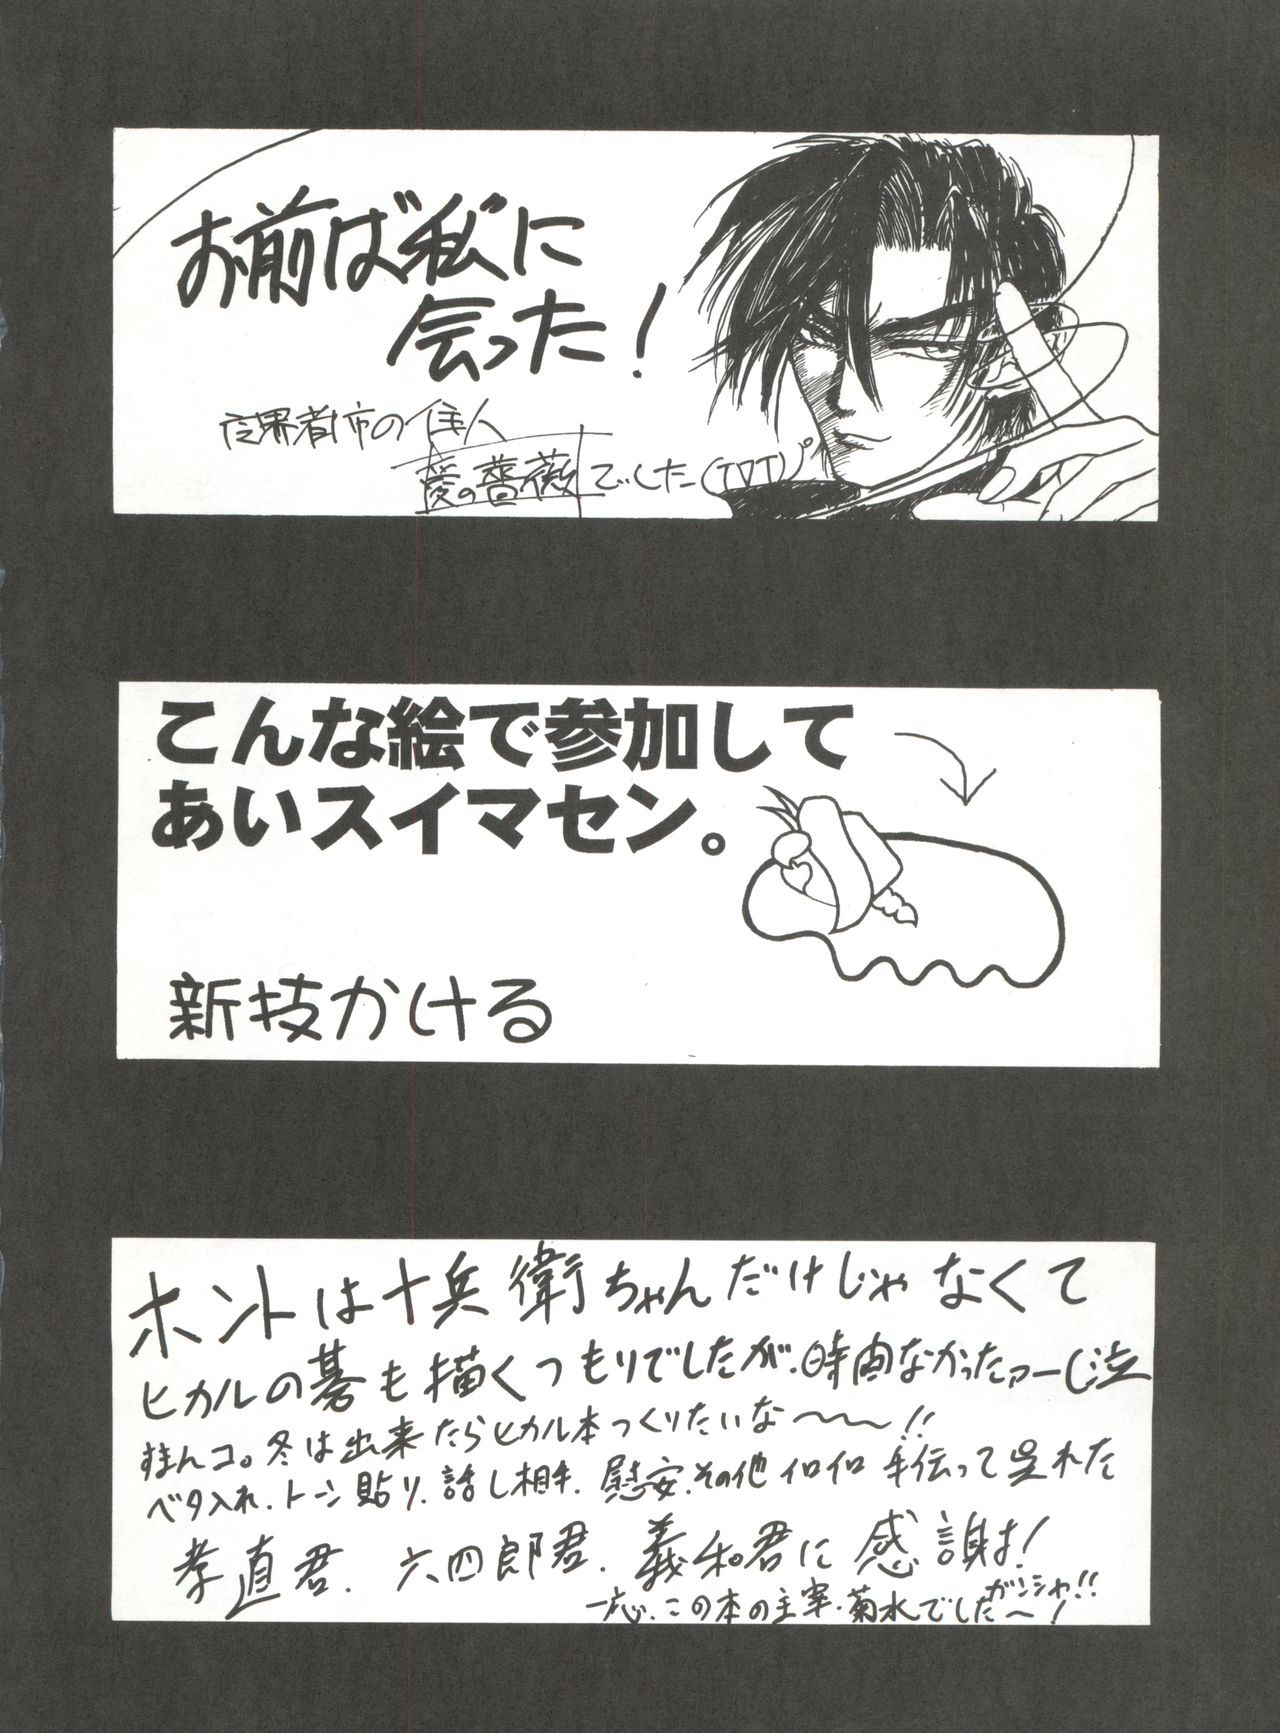 お前は私に
会った!
界都市の住人
愛の薔薇でした(T∇T)
こんな絵で参加して
あいスイマセン。
新技かける
ホントは十兵衛ちゃんだけじゃなくて
ヒカルの碁も描くつもりでしたが、時間なかったァー泣
すまんコ。冬は出来たらヒカル本つくりたいな〜〜!!
ベタ入れ、トーン貼り、話し相手、慰安、その他イロイロ手伝って呉れた
孝直君、六四郎君、義和君に感謝!
ガンシャ!!
一応、この本の主宰・菊水でした〜!